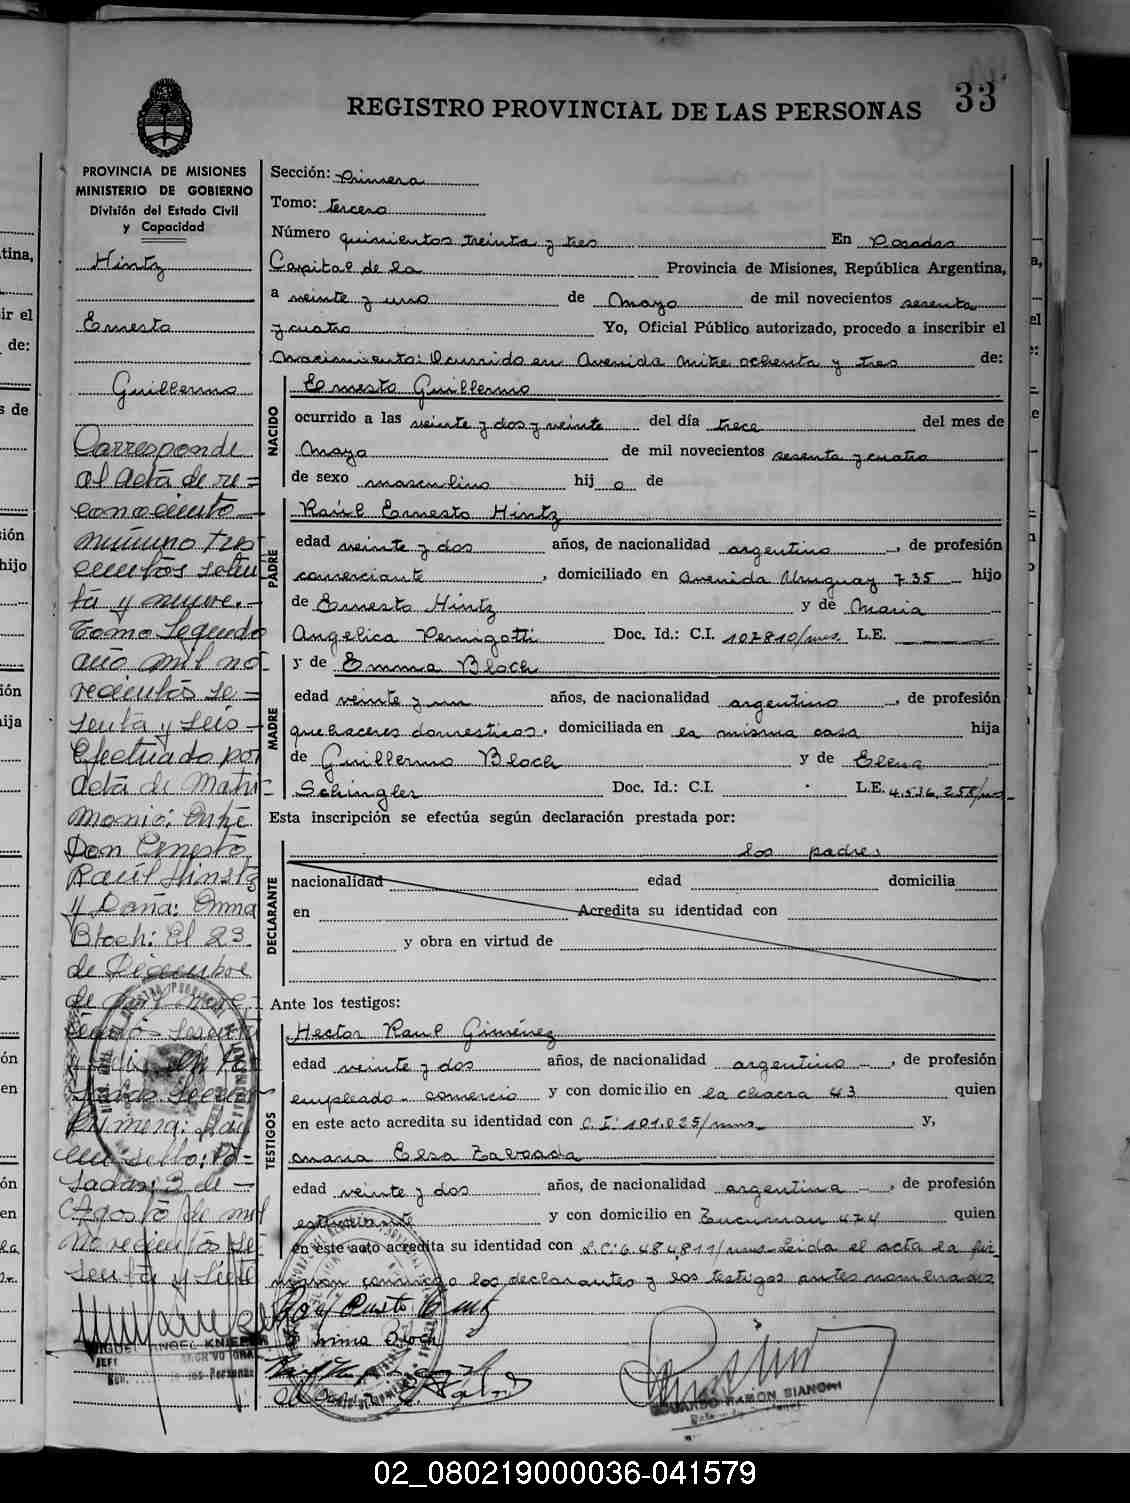 REGISTRO PROVINCIAL DE LAS PERSONAS
33
PROVINCIA DE MISIONES
MINISTERIO DE GOBIERNO
División del Estado Civil
y Capacidad
Hintz
Ernesto
Guillermo
Corresponde
al Acta de re=
conocimiento
número tres
cientos seten
ta y nueve.
Tomo Segundo
año mil no-
vecientos se=
senta y seis
Efectuado por
Acta de Matri-
monio: Entre
Don Ernesto
Raúl Hinstz
y Doña: Emma
Bloch: El 23
de Diciembre
de mil nove-
cientos sesenta
y seis en Po-
sadas Sección
Primera:
sello: Po-
sadas; 3 de
Agosto de mil
novecientos se-
senta y siete
MIGUEL ANGEL KNIE
Sección: Primera
Tomo: tercero
Número quinientos treinta y tres En Posadas
Capital de la Provincia de Misiones, República Argentina,
a veinte y uno de Mayo de mil novecientos sesenta
y cuatro Yo, Oficial Público autorizado, procedo a inscribir el
Nacimiento: Ocurrido en Avenida Mitre ochenta y tres de:
NACIDO
Ernesto Guillermo
ocurrido a las veinte y dos y veinte del día trece del mes de
Mayo de mil novecientos sesenta y cuatro
de sexo masculino hij o de
PADRE
Raúl Ernesto Hintz
edad veinte y dos años, de nacionalidad argentino, de profesión
comerciante, domiciliado en Avenida Uruguay 735 hijo
de Ernesto Hintz y de Maria
Angelica Pernigotti Doc. Id.: C.I. 107810/mns. L.E.
MADRE
y de Emma Bloch
edad veinte y un años, de nacionalidad argentino, de profesión
quehaceres domesticos, domiciliada en la misma casa hija
de Guillermo Bloch y de Elena
Schingler Doc. Id.: C.I. L.E. 4.536.258/mns
Esta inscripción se efectúa según declaración prestada por:
DECLARANTE
los padres
nacionalidad edad domicilia
en Acredita su identidad con
y obra en virtud de
Ante los testigos:
TESTIGOS
Hector Raul Giménez
edad veinte y dos años, de nacionalidad argentino, de profesión
empleado - comercio y con domicilio en la chacra 43 quien
en este acto acredita su identidad con C.I: 101.025/mns y,
Maria Elsa Taboada
edad veinte y dos años, de nacionalidad argentina, de profesión
estudiante y con domicilio en Tucuman 474 quien
en este acto acredita su identidad con L.C: 6.484811/mns - Leida el acta la fir-
maron conmigo los declarantes y los testigos antes nombrados
Emma Bloch
EDUARDO RAMON BIANCHI
02_080219000036-041579